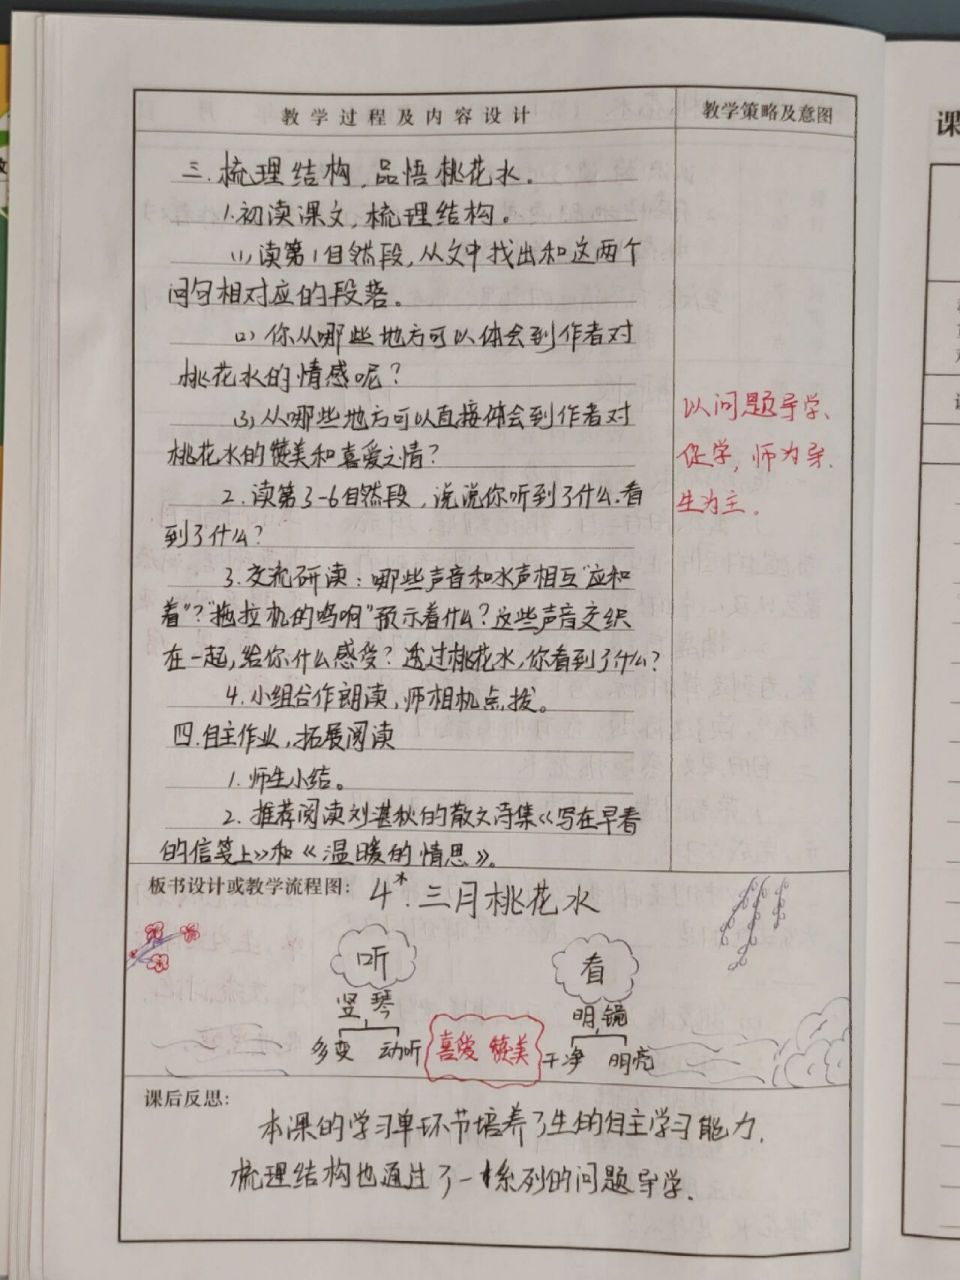 教学过程及内容设计
教学策略及意图
三.梳理结构,品悟桃花水。
1.初读课文,梳理结构。
(1)读第1自然段,从文中找出和这两个
问句相对应的段落。
(2)你从哪些地方可以体会到作者对
桃花水的情感呢?
(3)从哪些地方可以直接体会到作者对
桃花水的赞美和喜爱之情?
2.读第3-6自然段,说说你听到了什么.看
到了什么?
3.交流研读:哪些声音和水声相互“应和
着”?“拖拉机的鸣响”预示着什么?这些声音交织
在一起,给你什么感受?透过桃花水,你看到了什么?
4.小组合作朗读,师相机点拨。
四.自主作业,拓展阅读
1.师生小结。
2.推荐阅读刘湛秋的散文诗集《写在早春
的信笺上》和《温暖的情思》。
以问题导学、
促学,师为导.
生为主.
板书设计或教学流程图:
4*.三月桃花水
听
看
竖琴
明镜
多变 动听
喜爱 赞美
干净 明亮
课后反思:
本课的学习单环节培养了生的自主学习能力.
梳理结构也通过了一系列的问题导学.
课